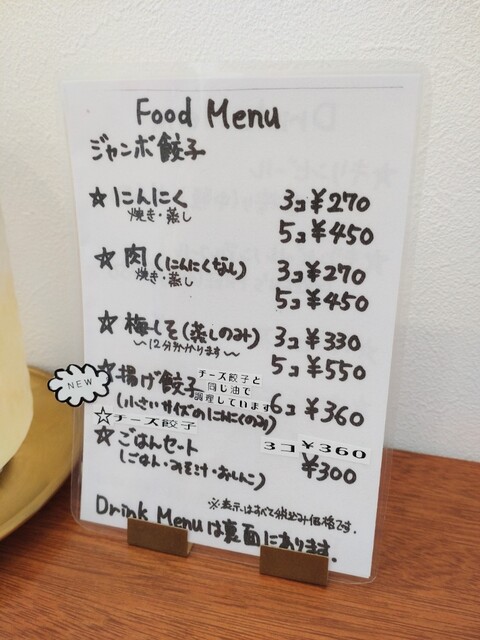 Food Menu
ジャンボ餃子
☆にんにく 3コ ¥270
焼き・蒸し
5コ ¥450
☆肉(にんにくなし) 3コ ¥270
焼き・蒸し
5コ ¥450
☆梅しそ(蒸しのみ) 3コ ¥330
〜12分かかります〜
5コ ¥550
NEW
☆揚げ餃子 6コ ¥360
チーズ餃子と
同じ油で
調理しています
(小さいサイズのにんにくのみ)
☆チーズ餃子 3コ ¥360
☆ごはんセット ¥300
(ごはん・みそ汁・おしんこ)
※表示はすべて税込み価格です。
Drink Menuは裏面にあります。